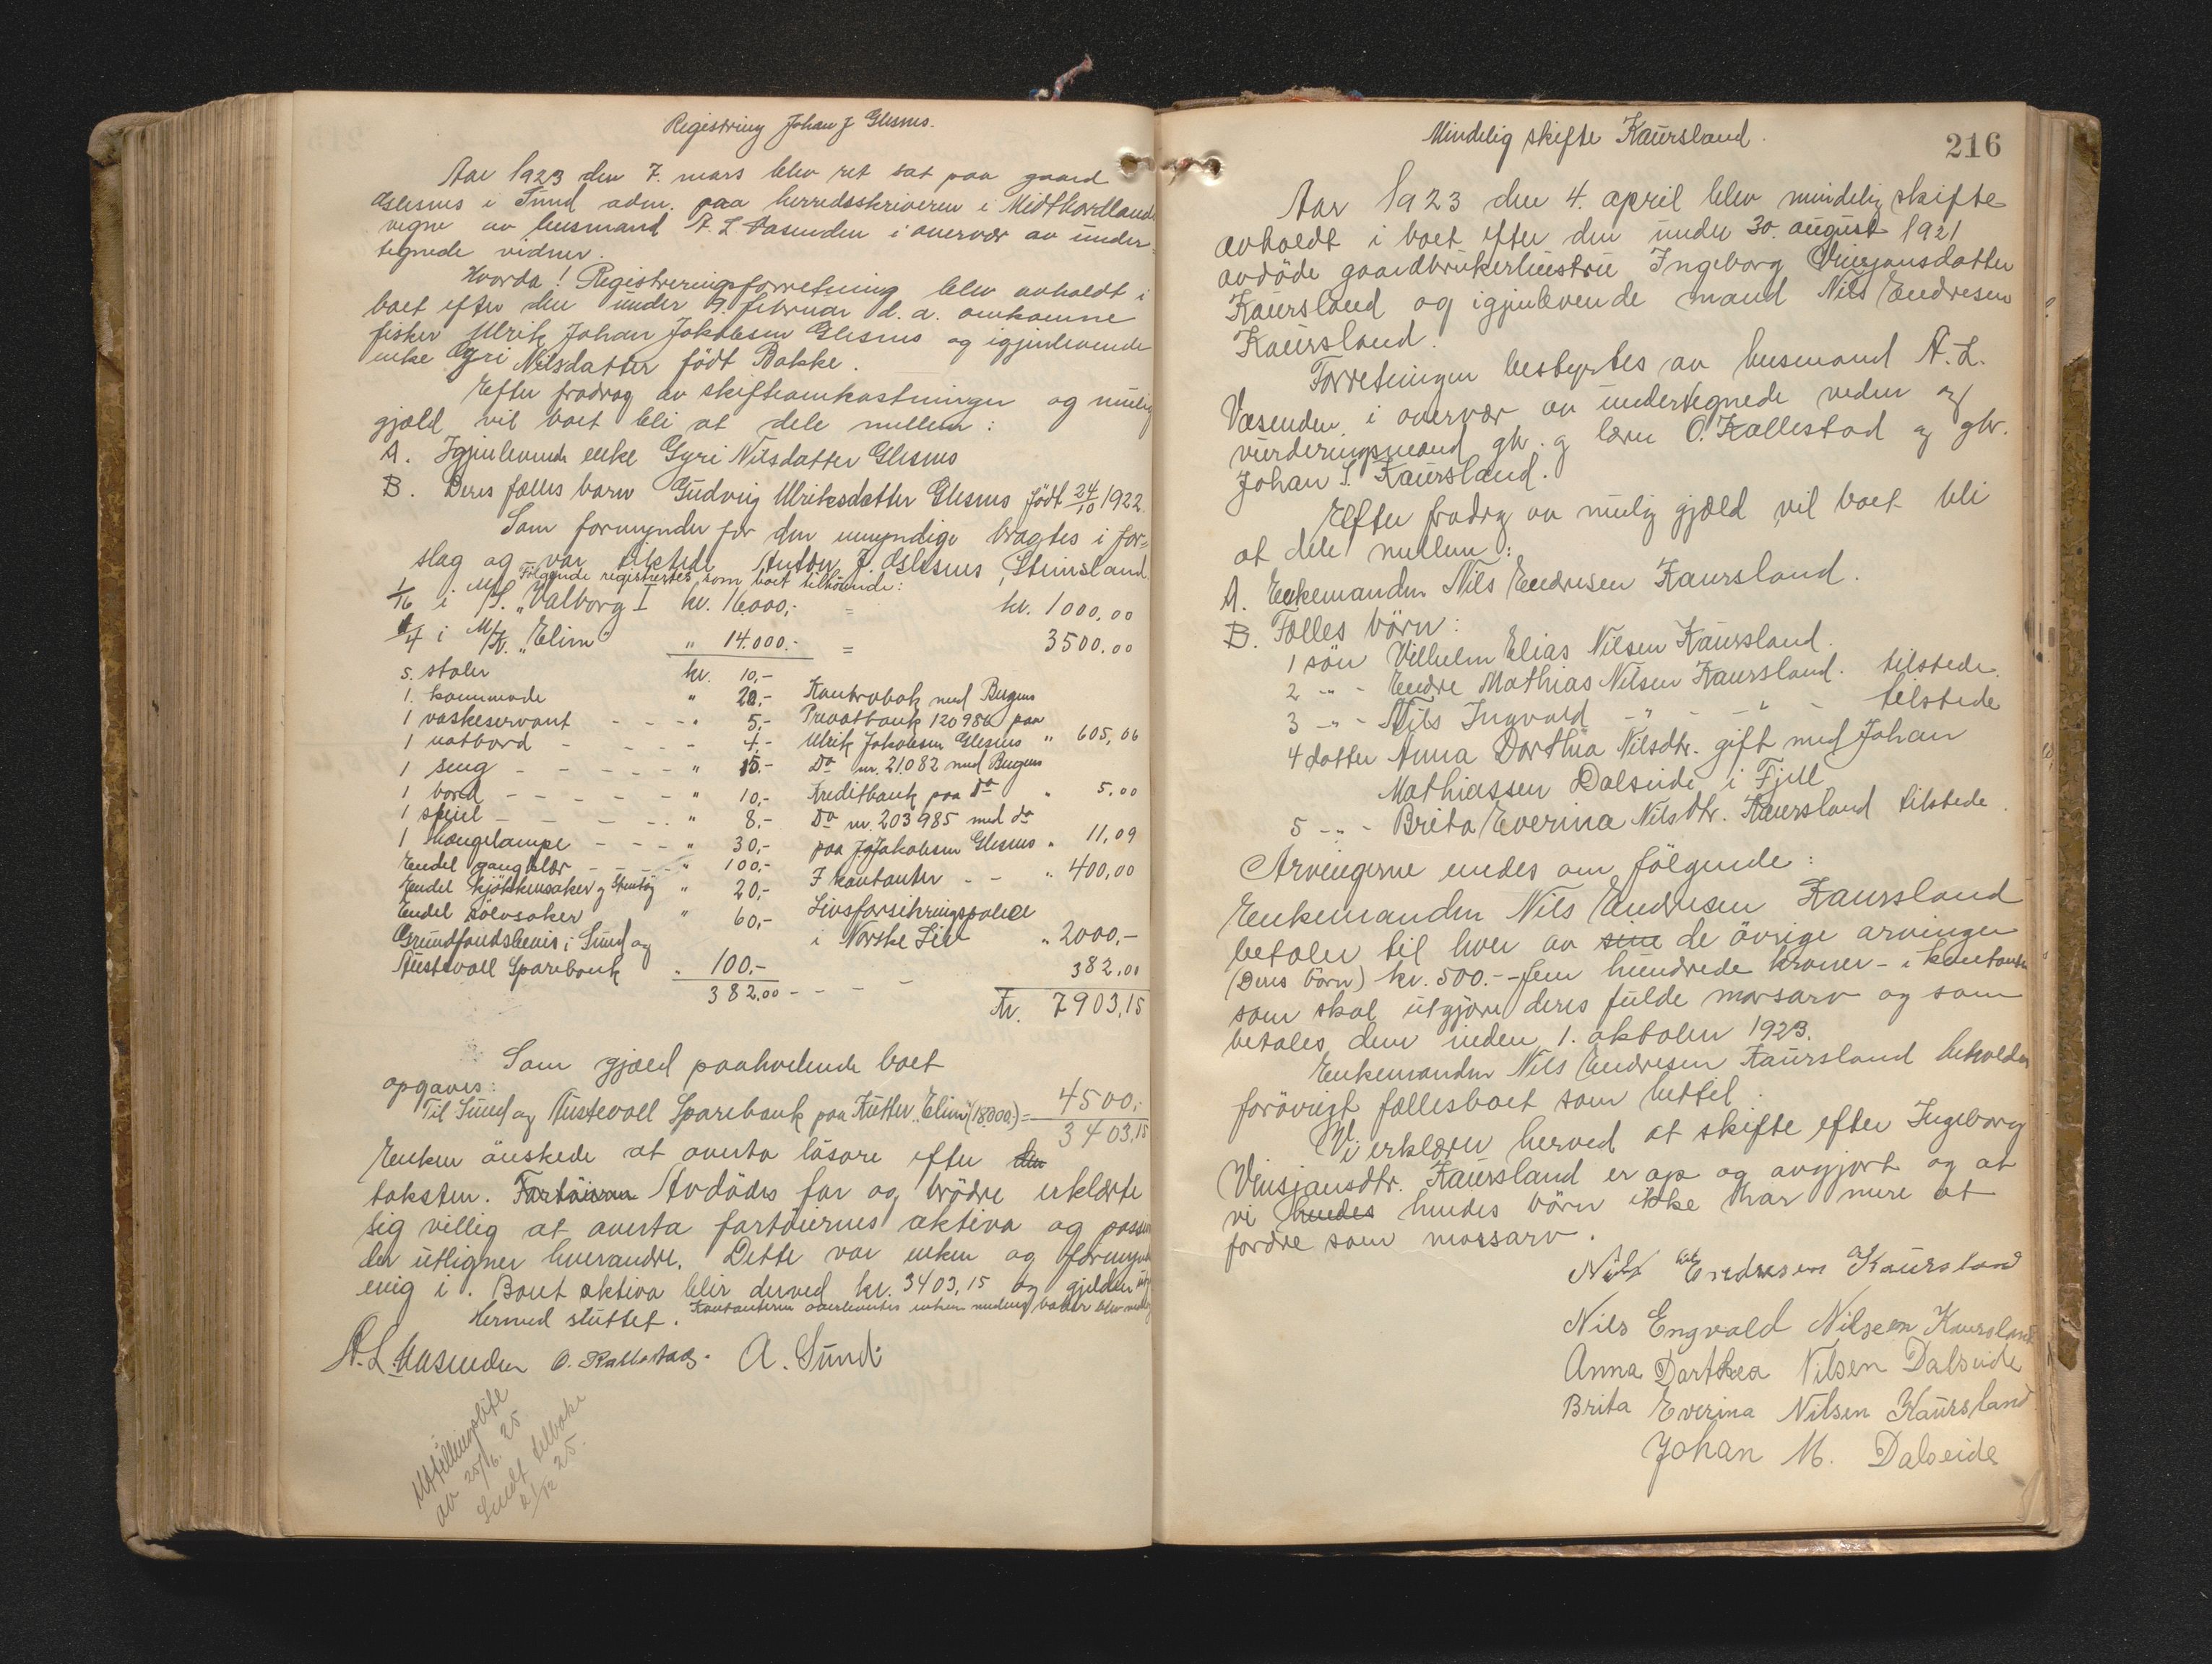 Registring Johan J Glesnes.
Aar 1923 den 7. mars blev ret sat paa gaard
Glesnes i Sund adm. paa herredsskriveren i Midthordland
vegne av lensmand A. L Vasenden i overvær av under-
tegnede vidner.
Hvorda! Registreringsforretning blev avholdt i
boet efter den under 9. februar d. a. omkomne
fisker Ulrik Johan Jakobsen Glesnes og igjenlevende
enke Gyri Nilsdatter født Bakke.
Efter fradrag av skifteomkostninger og mulig
gjæld vil boet bli at dele mellem:
A. Igjenlevende enke Gyri Nilsdatter Glesnes
B. Deres fælles barn Gudveig Ulriksdatter Glesnes født 24/10 1922.
Som formynder for den umyndige bragtes i for-
slag og var tilstede Anton J. Glesnes, Steinsland.
Følgende registrertes som boet tilhørende:
1/16 i M/S. „Valborg I kr. 16.000,- = kr. 1000,00
1/4 i M/K. „Elim" " 14.000.- = 3500,00
5. stoler kr. 10,-
1. kommode " 20,- Kontrabok med Bergens
1 vaskeservant - - - " 5,- Privatbank 120986 paa
1 natbord - - - - 4,- Ulrik Jakobsen Glesnes " 605,06
1 seng - - - - - " 15.- Do nr. 21.082 med Bergens
1 bord - - - - - " 10,- Kreditbank paa do " 5.00
1 speil - - - - - " 8,- Do nr. 203985 med do
1 hængelampe - - - " 30,- paa J Jakobsen Glesnes " 11,09
Endel gangklær - - - " 100,- I kontanter - - " 400,00
Endel kjøkkensaker og stentøi " 20,- Livsforsikringspolice
Endel sølvsaker " 60,- i Norske Liv " 2000,-
Grundfondsbevis i Sund og
Austevoll Sparebank " 100,- 382,00
382,00 - - - - Kr. 7903,15
Som gjæld paahvilende boet
opgaves:
Til Sund og Austevoll Sparebank paa Kutter „Elim" (18000) = 4500,-
3403,15
Enken ønskede at overta løsøre efter den
taksten. Fartøierne Avdødes far og brødre erklærte
sig villig at overta fartøiernes aktiva og passiva
der utligner hverandre. Dette var enken og formynder
enig i. Boets aktiva blir derved kr. 3403,15 og gjelden
Hermed sluttet. Kontanterne overleveres enken
A. L Vasenden O. Kallestad. A. Sund
Utstillingsliste
av 25/6. 25
Sendt tilbake
21/12 25.
Mindelig skifte Kaursland.
216
Aar 1923 den 4. april blev mindelig skifte
avholdt i boet efter den under 30. august 1921
avdøde gaardbrukerhustru Ingeborg Vinsjansdatter
Kaursland og igjenlevende mand Nils Endresen
Kaursland.
Forretningen bestyrtes av lensmand A. L.
Vasenden i overvær av undertegnede vidner og
vurderingsmænd gbr. og lærer O. Kallestad og gbr.
Johan S. Kaursland.
Efter fradrag av mulig gjæld vil boet bli
at dele mellem:
A. Enkemanden Nils Endresen Kaursland.
B. Fælles børn:
1 søn Vilhelm Elias Nilsen Kaursland.
2 -"- Endre Mathias Nilsen Kaursland. tilstede.
3 -"- Nils Ingvald -"- -"- tilstede
4 datter Anna Dorthea Nilsdtr. gift med Johan
Mathiassen Dalseide i Fjell
5 -"- Brita Everina Nilsdtr. Kaursland tilstede.
Arvingerne enedes om følgende:
Enkemanden Nils Endresen Kaursland
betaler til hver av sine de øvrige arvinger
(Deres børn) kr. 500.- -fem hundrede kroner- i kontanter
som skal utgjøre deres fulde morsarv og som
betales dem inden 1. oktober 1923.
Enkemanden Nils Endresen Kaursland beholder
forøvrigt fællesboet som lutlel.
Vi erklærer herved at skifte efter Ingeborg
Vinsjansdtr. Kaursland er op og avgjort og at
vi hendes hendes børn ikke har mere at
fordre som morsarv.
Nils Endresen Kaursland
Nils Engvald Nilsen Kaursland
Anna Dorthea Nilsen Dalseide
Brita Everina Nilsen Kaursland
Johan M. Dalseide